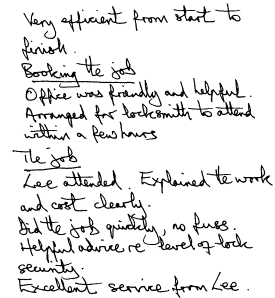 Very efficient from start to
finish.
Booking the job
Office was friendly and helpful.
Arranged for locksmith to attend
within a few hours
The job
Lee attended. Explained the work
and cost clearly.
Did the job quickly, no fuss.
Helpful advice re level of lock
security.
Excellent service from Lee.